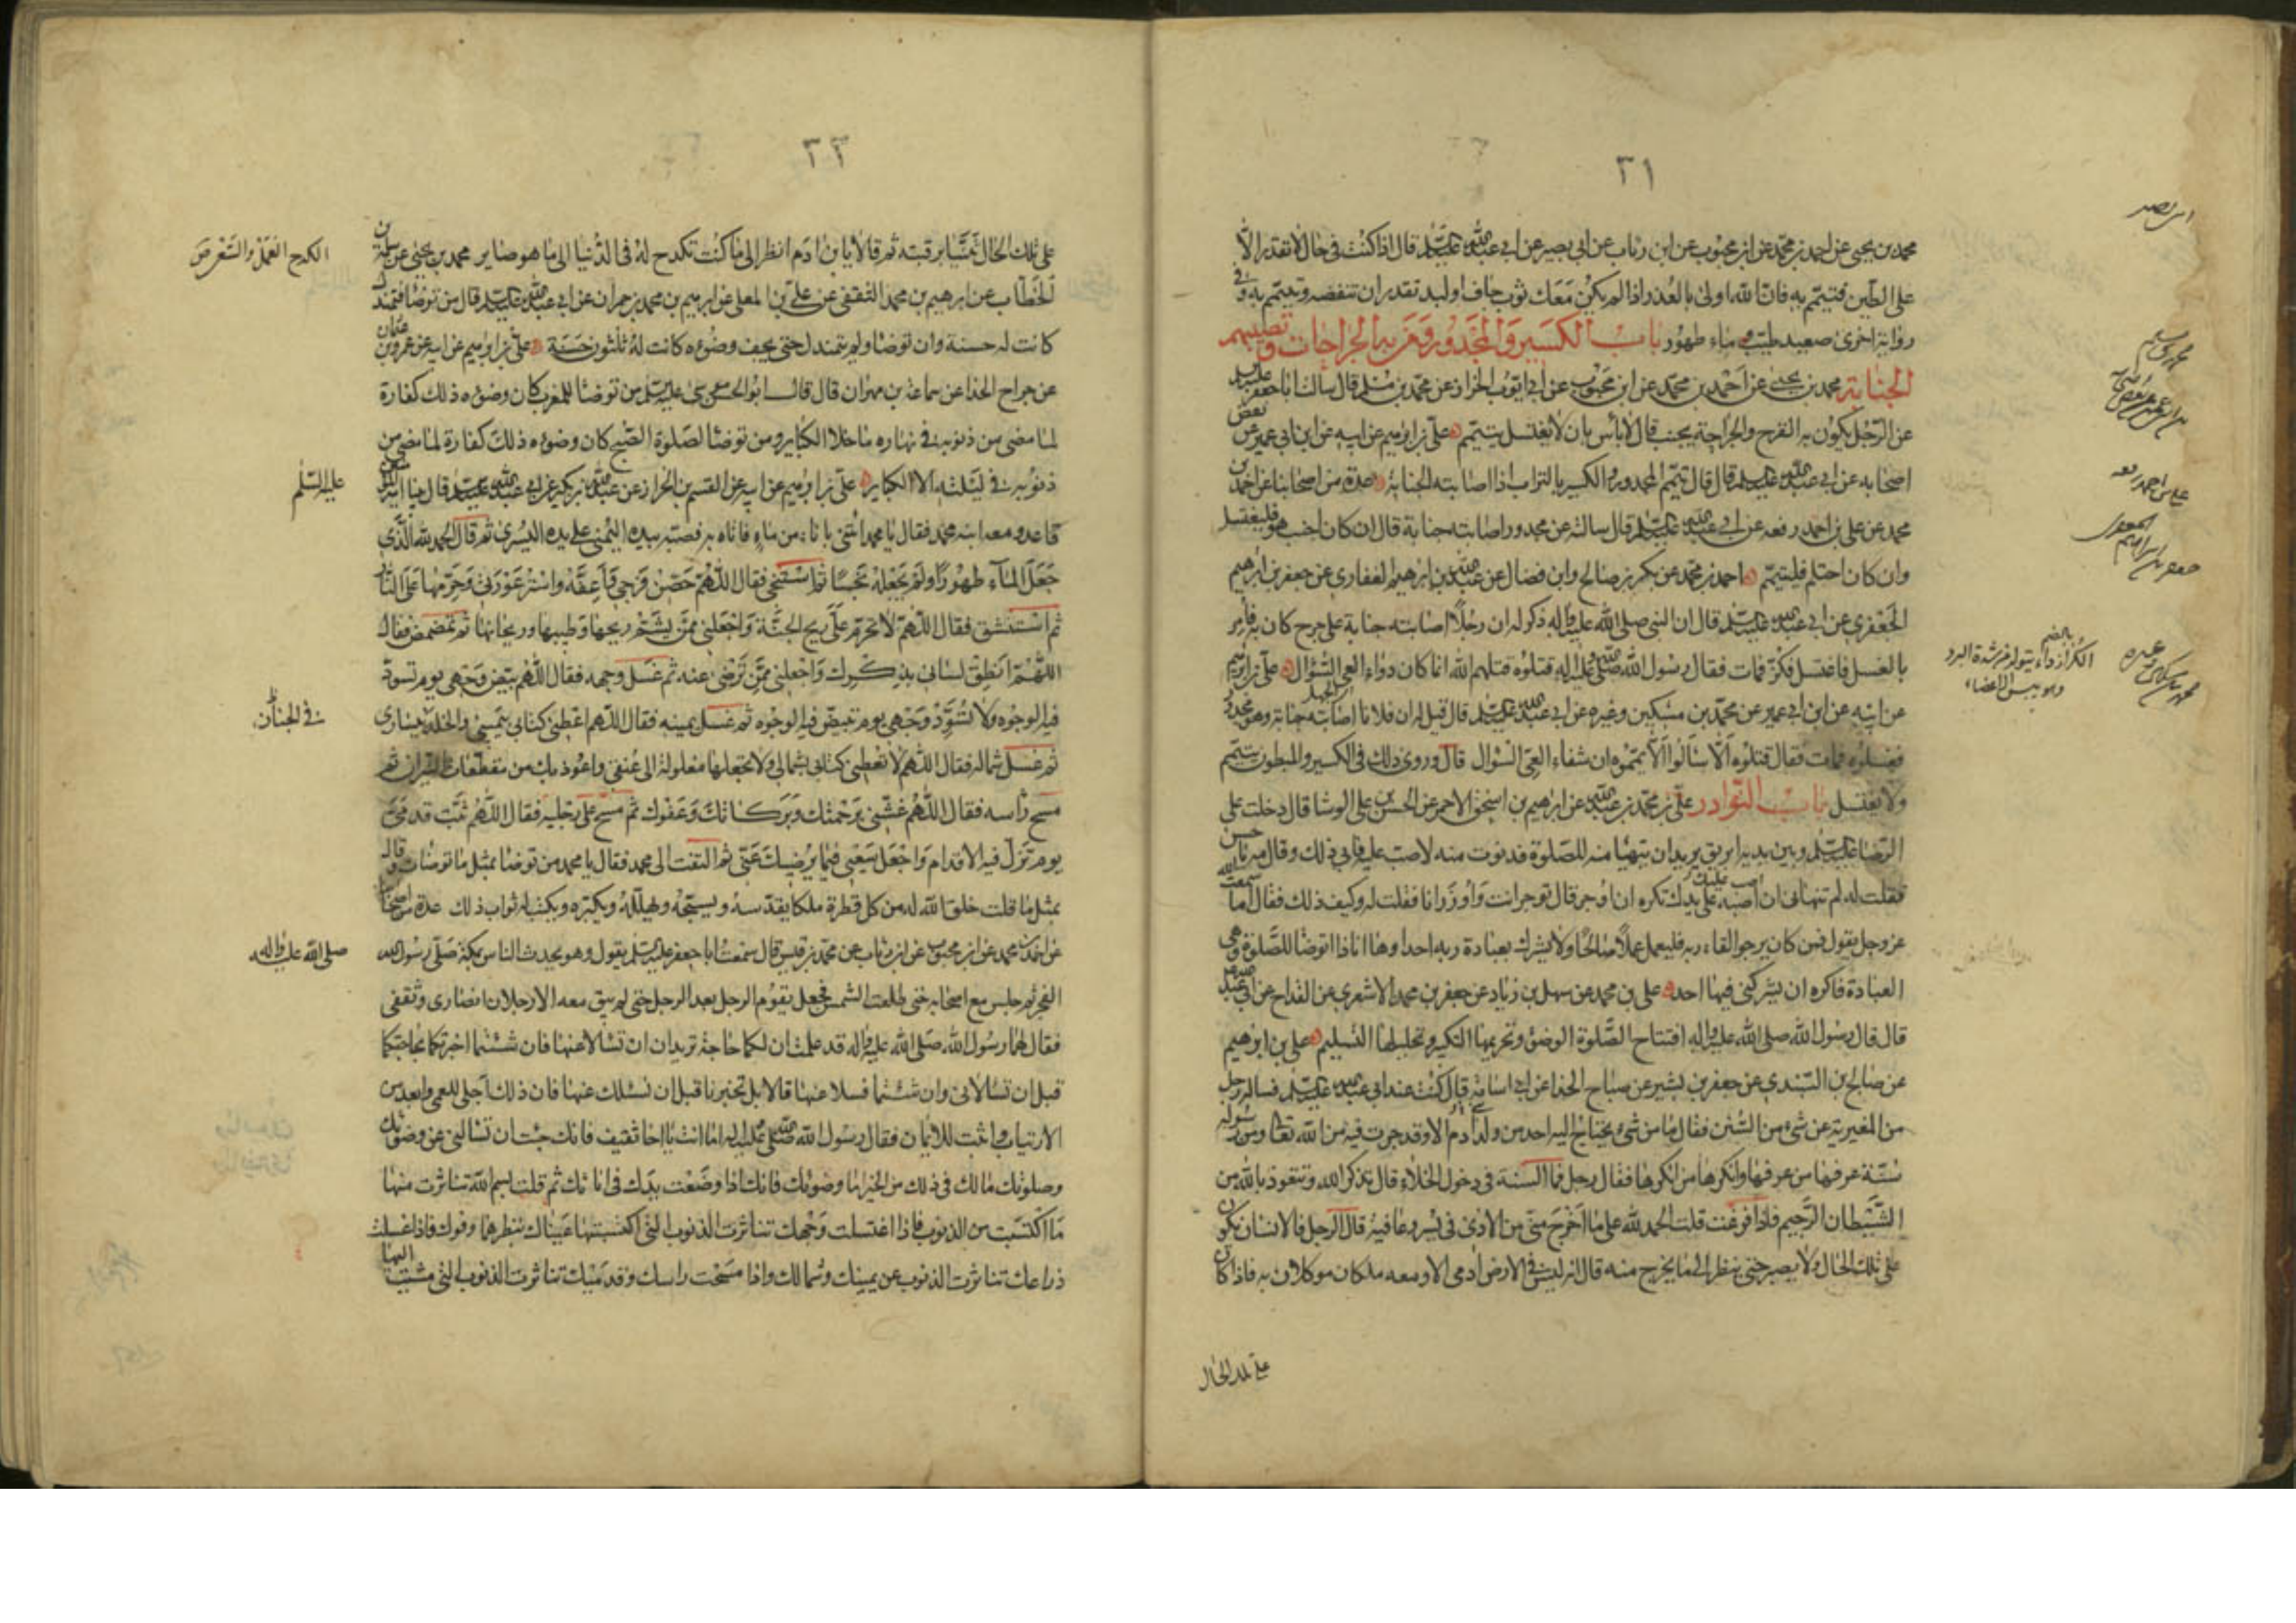 ٣١
محمد بن يحيى عن احمد بن محمد عن ابن محبوب عن ابن رئاب عن ابي بصير عن ابي عبد الله عليه السلم قال اذا كنت في حال لا تقدر الا
على الطين فتيمم به فان الله اولى بالعذر اذا لم يكن معك ثوب جاف او لبد تقدر ان تنفضه وتيمم به وفي
رواية اخرى صعيد طيب وماء طهور باب الكسير والمجدور ومن به الجراحات وتصيبهم
الجنابة محمد بن يحيى عن احمد بن محمد عن ابن محبوب عن ابي ايوب الخزاز عن محمد بن مسلم قال سالت ابا جعفر عليه السلم
عن الرجل يكون به القرح والجراحة يجنب قال لا باس بان لا يغتسل يتيمم علي بن ابرهيم عن ابيه عن ابن ابي عمير عن بعض
اصحابه عن ابي عبد الله عليه السلم قال قال تيمم المجدور والكسير بالتراب اذا اصابته الجنابة عدة من اصحابنا عن احمد بن
محمد عن علي بن احمد رفعه عن ابي عبد الله عليه السلم قال سالته عن مجدور اصابته جنابة قال ان كان اجنب هو فليغتسل
وان كان احتلم فليتيمم احمد بن محمد عن بكر بن صالح وابن فضال عن عبد الله بن ابرهيم الغفاري عن جعفر بن ابرهيم
الجعفري عن ابي عبد الله عليه السلم قال ان النبي صلى الله عليه واله ذكر له ان رجلا اصابته جنابة على جرح كان به فامر
بالغسل فاغتسل فكز فمات فقال رسول الله صلى الله عليه واله قتلوه قتلهم الله انما كان دواء العي السؤال علي بن ابرهيم
عن ابيه عن ابن ابي عمير عن محمد بن مسكين وغيره عن ابي عبد الله عليه السلم قال قيل له ان فلانا اصابته جنابة وهو مجدور
فغسلوه فمات فقال قتلوه الا سالوا الا يمموه ان شفاء العي السؤال قال وروى ذلك في الكسير والمبطون يتيمم
ولا يغتسل باب النوادر علي بن محمد بن عبد الله عن ابرهيم بن اسحق الاحمر عن الحسن بن علي الوشا قال دخلت على
الرضا عليه السلم وبين يديه ابريق يريد ان يتهيا منه للصلوة فدنوت منه لاصب عليه فابى ذلك وقال مه يا حسن
فقلت له لم تنهاني ان اصب على يدك تكره ان اوجر قال توجر انت واوزر انا فقلت له وكيف ذلك فقال اما سمعت الله
عز وجل يقول فمن كان يرجو القاء ربه فليعمل عملا صالحا ولا يشرك بعبادة ربه احدا وها انا ذا اتوضا للصلوة وهي
العبادة فاكره ان يشركني فيها احد علي بن محمد عن سهل بن زياد عن جعفر بن محمد الاشعري عن القداح عن ابي عبد
قال قال رسول الله صلى الله عليه واله افتتاح الصلوة الوضوء وتحريمها التكبير وتحليلها التسليم علي بن ابرهيم
عن صالح بن السندي عن جعفر بن بشير عن صباح الحذا عن ابي اسامة قال كنت عند ابي عبد الله عليه السلم فساله رجل
من المغيرية عن شيء من السنن فقال ما من شيء يحتاج اليه احد من ولد ادم الا وقد جرت فيه من الله تعالى ومن رسوله
سنة عرفها من عرفها وانكرها من انكرها فقال رجل فما السنة في دخول الخلاء قال تذكر الله وتتعوذ بالله من
الشيطان الرجيم فاذا فرغت قلت الحمد لله على ما اخرج مني من الاذى في يسر وعافية قال الرجل فالانسان يكون
على تلك الحال ولا يصبر حتى ينظر الى ما يخرج منه قال انه ليس في الارض ادمي الا ومعه ملكان موكلان به فاذا كان
على تلك الحال
الكزاز بالضم داء يتولد من شدة البرد
وهو يبس الاعضاء
٣٢
على تلك الحال ثنيا برقبته ثم قالا يا بن ادم انظر الى ما كنت تكدح له في الدنيا الى ما هو صاير محمد بن يحيى عن سلمة بن
الخطاب عن ابرهيم بن محمد الثقفي عن علي بن المعلى عن ابرهيم بن محمد بن حمران عن ابي عبد الله عليه السلم قال من توضا فتمندل
كانت له حسنة وان توضا ولم يتمندل حتى يجف وضوءه كانت له ثلثون حسنة علي بن ابرهيم عن ابيه عن عمرو بن عثمان
عن جراح الحذا عن سماعة بن مهران قال قال ابو الحسن موسى عليه السلم من توضا للمغرب كان وضوءه ذلك كفارة
لما مضى من ذنوبه في نهاره ما خلا الكباير ومن توضا لصلوة الصبح كان وضوءه ذلك كفارة لما مضى من
ذنوبه في ليلته الا الكباير علي بن ابرهيم عن ابيه عن القسم بن الخزاز عن عبد الرحمن بن كثير عن ابي عبد الله عليه السلم قال بينا امير المؤمنين
قاعد ومعه ابنه محمد فقال يا محمد ائتني باناء من ماء فاتاه به فصبه بيده اليمنى على يده اليسرى ثم قال الحمد لله الذي
جعل الماء طهورا ولم يجعله نجسا ثم استنجى فقال اللهم حصن فرجي واعفه واستر عورتي وحرمها على النار
ثم استنشق فقال اللهم لا تحرم علي ريح الجنة واجعلني ممن يشم ريحها وطيبها وريحانها ثم تمضمض فقال
اللهم انطق لساني بذكرك واجعلني ممن ترضى عنه ثم غسل وجهه فقال اللهم بيض وجهي يوم تسود
فيه الوجوه ولا تسود وجهي يوم تبيض فيه الوجوه ثم غسل يمينه فقال اللهم اعطني كتابي بيميني والخلد بيساري
ثم غسل شماله فقال اللهم لا تعطني كتابي بشمالي ولا تجعلها مغلولة الى عنقي واعوذ بك من مقطعات النيران ثم
مسح راسه فقال اللهم غشني برحمتك وبركاتك وعفوك ثم مسح على رجليه فقال اللهم ثبت قدمي
يوم تزل فيه الاقدام واجعل سعيي فيما يرضيك عني ثم التفت الى محمد فقال يا محمد من توضا بمثل ما توضات وقال
بمثل ما قلت خلق الله له من كل قطرة ملكا يقدسه ويسبحه ويهلله ويكبره ويكتب له ثواب ذلك عدة من اصحابنا
عن احمد بن محمد عن ابن محبوب عن ابن رئاب عن محمد بن قيس قال سمعت ابا جعفر عليه السلم يقول وهو يحدث الناس بمكة صلى رسول الله
الفجر ثم جلس مع اصحابه حتى طلعت الشمس فجعل يقوم الرجل بعد الرجل حتى لم يبق معه الا رجلان انصاري وثقفي
فقال لهما رسول الله صلى الله عليه واله قد علمت ان لكما حاجة تريدان ان تسالا عنها فان شئتما اخبرتكما بحاجتكما
قبل ان تسالاني وان شئتما فسلا عنها قالا بل تخبرنا قبل ان نسئلك عنها فان ذلك اجلى للعمى وابعد من
الارتياب واثبت للايمان فقال رسول الله صلى الله عليه واله اما انت يا اخا ثقيف فانك جئت ان تسالني عن وضوئك
وصلوتك مالك في ذلك من الخير اما وضوئك فانك اذا وضعت يدك في انائك ثم قلت بسم الله تناثرت منها
ما اكتسبت من الذنوب فاذا غسلت وجهك تناثرت الذنوب التي اكتسبتها عيناك بنظرهما وفوك فاذا غسلت
ذراعك تناثرت الذنوب عن يمينك وشمالك واذا مسحت راسك وقدميك تناثرت الذنوب التي مشيت اليها
الكدح العمل والسعي
عليه السلم
في الجنان
صلى الله عليه واله